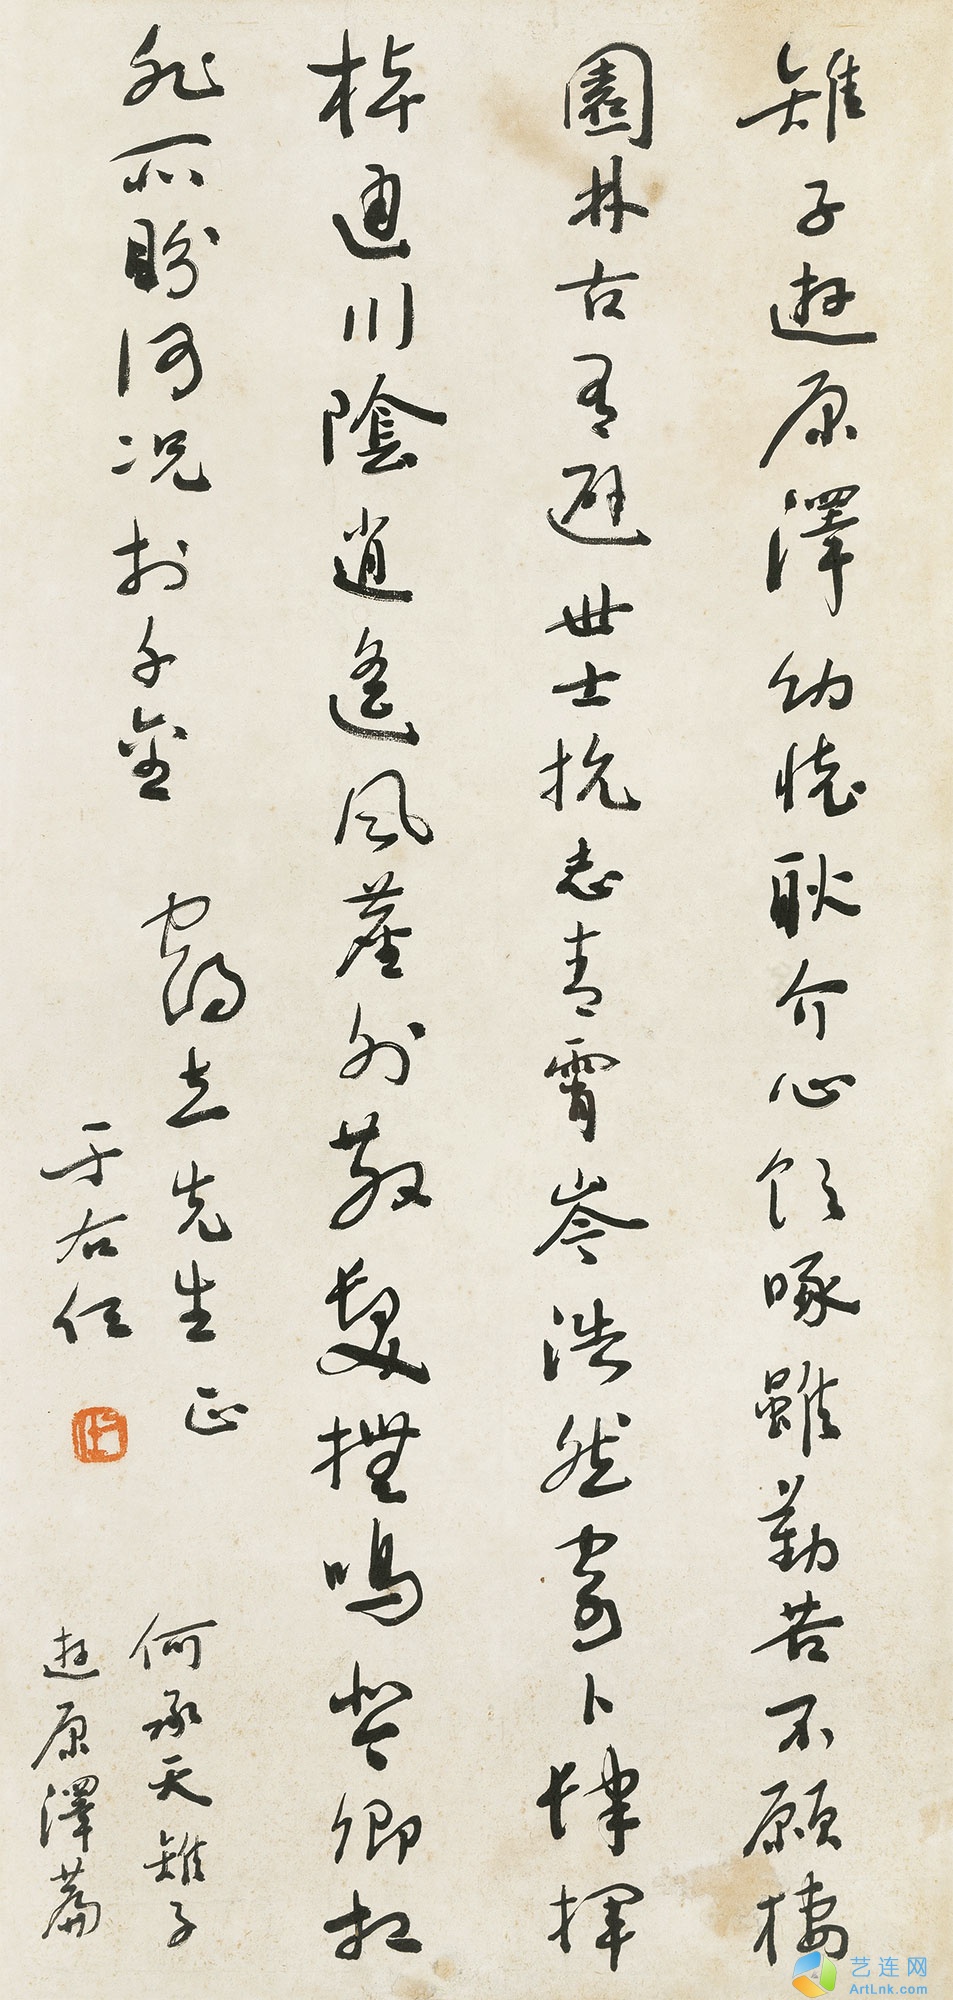 雉子遊原澤幼懷耿介心飲啄雖勤苦不願棲
園林古有避世士抗志青霄岑浩然寄卜肆揮
棹通川陰逍遙風塵外散髮撫鳴琴卿相
非所盼何况於千金
先生正
于右任
何承天雉子
遊原澤篇
艺连网
ArtLnk.com